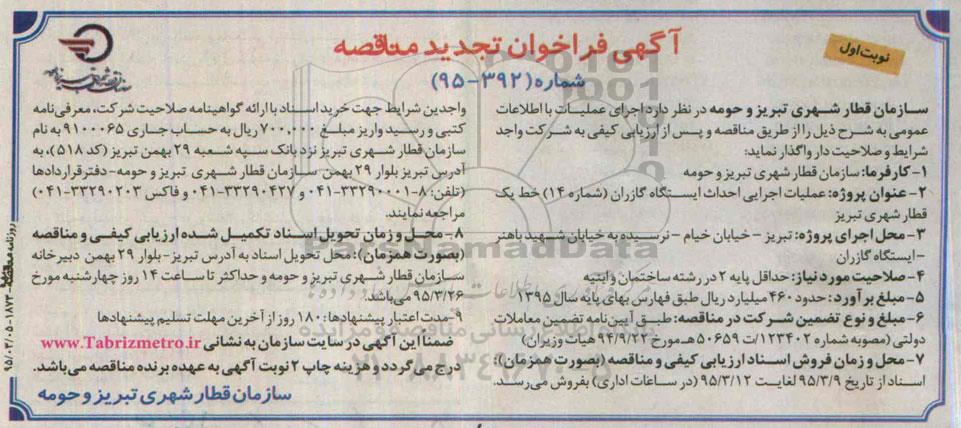 آگهی فراخوان تجدید مناقصه
شماره (۳۹۲-۹۵)
نوبت اول
سازمان قطار شهری تبریز و حومه در نظر دارد اجرای عملیات با اطلاعات
عمومی به شرح ذیل را از طریق مناقصه و پس از ارزیابی کیفی به شرکت واجد
شرایط و صلاحیت دار واگذار نماید:
۱- کارفرما: سازمان قطار شهری تبریز و حومه
۲- عنوان پروژه: عملیات اجرایی احداث ایستگاه گازران (شماره ۱۴) خط یک
قطار شهری تبریز
۳- محل اجرای پروژه: تبریز - خیابان خیام - نرسیده به خیابان شهید باهنر
- ایستگاه گازران
۴- صلاحیت مورد نیاز: حداقل پایه ۲ در رشته ساختمان و ابنیه
۵- مبلغ برآورد: حدود ۴۶۰ میلیارد ریال طبق فهارس بهای پایه سال ۱۳۹۵
۶- مبلغ و نوع تضمین شرکت در مناقصه: طبق آیین نامه تضمین معاملات
دولتی (مصوبه شماره ۱۲۳۴۰۲/ت ۵۰۶۵۹هـ مورخ ۹۴/۹/۲۲ هیات وزیران)
۷- محل و زمان فروش اسناد ارزیابی کیفی و مناقصه (بصورت همزمان):
اسناد از تاریخ ۹۵/۳/۹ لغایت ۹۵/۳/۱۲ (در ساعات اداری) بفروش می‌رسد.
واجدین شرایط جهت خرید اسناد با ارائه گواهینامه صلاحیت شرکت، معرفی نامه
کتبی و رسید واریز مبلغ ۷۰۰,۰۰۰ ریال به حساب جاری ۹۱۰۰۰۶۵ به نام
سازمان قطار شهری تبریز نزد بانک سپه شعبه ۲۹ بهمن تبریز (کد ۵۱۸)، به
آدرس تبریز بلوار ۲۹ بهمن سازمان قطار شهری تبریز و حومه- دفتر قراردادها
(تلفن: ۸-۳۳۲۹۰۰۰۱-۰۴۱ و ۳۳۲۹۰۴۲۷-۰۴۱ و فاکس ۳۳۲۹۰۲۰۳-۰۴۱)
مراجعه نمایند.
۸- محل و زمان تحویل اسناد تکمیل شده ارزیابی کیفی و مناقصه
(بصورت همزمان): محل تحویل اسناد به آدرس تبریز- بلوار ۲۹ بهمن دبیرخانه
سازمان قطار شهری تبریز و حومه و حداکثر تا ساعت ۱۴ روز چهارشنبه مورخ
۹۵/۳/۲۶ می‌باشد.
۹- مدت اعتبار پیشنهادها: ۱۸۰ روز از آخرین مهلت تسلیم پیشنهادها
ضمنا این آگهی در سایت سازمان به نشانی www.Tabrizmetro.ir
درج می گردد و هزینه چاپ ۲ نوبت آگهی به عهده برنده مناقصه می‌باشد.
سازمان قطار شهری تبریز و حومه
ParsNamadData